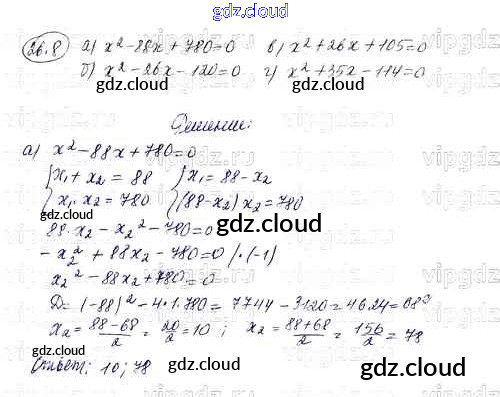 gdz.cloud
26.8 а) x² - 88x + 780 = 0 в) x² + 26x + 105 = 0
б) x² - 26x - 120 = 0 г) x² + 35x - 114 = 0
gdz.cloud gdz.cloud
Решение:
а) x² - 88x + 780 = 0
{ x₁ + x₂ = 88 { x₁ = 88 - x₂
{ x₁ · x₂ = 780 { (88 - x₂) x₂ = 780
88·x₂ - x₂² - 780 = 0
gdz.cloud
- x₂² + 88x₂ - 780 = 0 / · (-1)
x₂² - 88x₂ + 780 = 0
D = (-88)² - 4·1·780 = 7744 - 3120 = 4624 = 68²
x₂ = (88-68)/2 = 20/2 = 10 ; x₂ = (88+68)/2 = 156/2 = 78
Ответ: 10; 78
gdz.cloud gdz.cloud